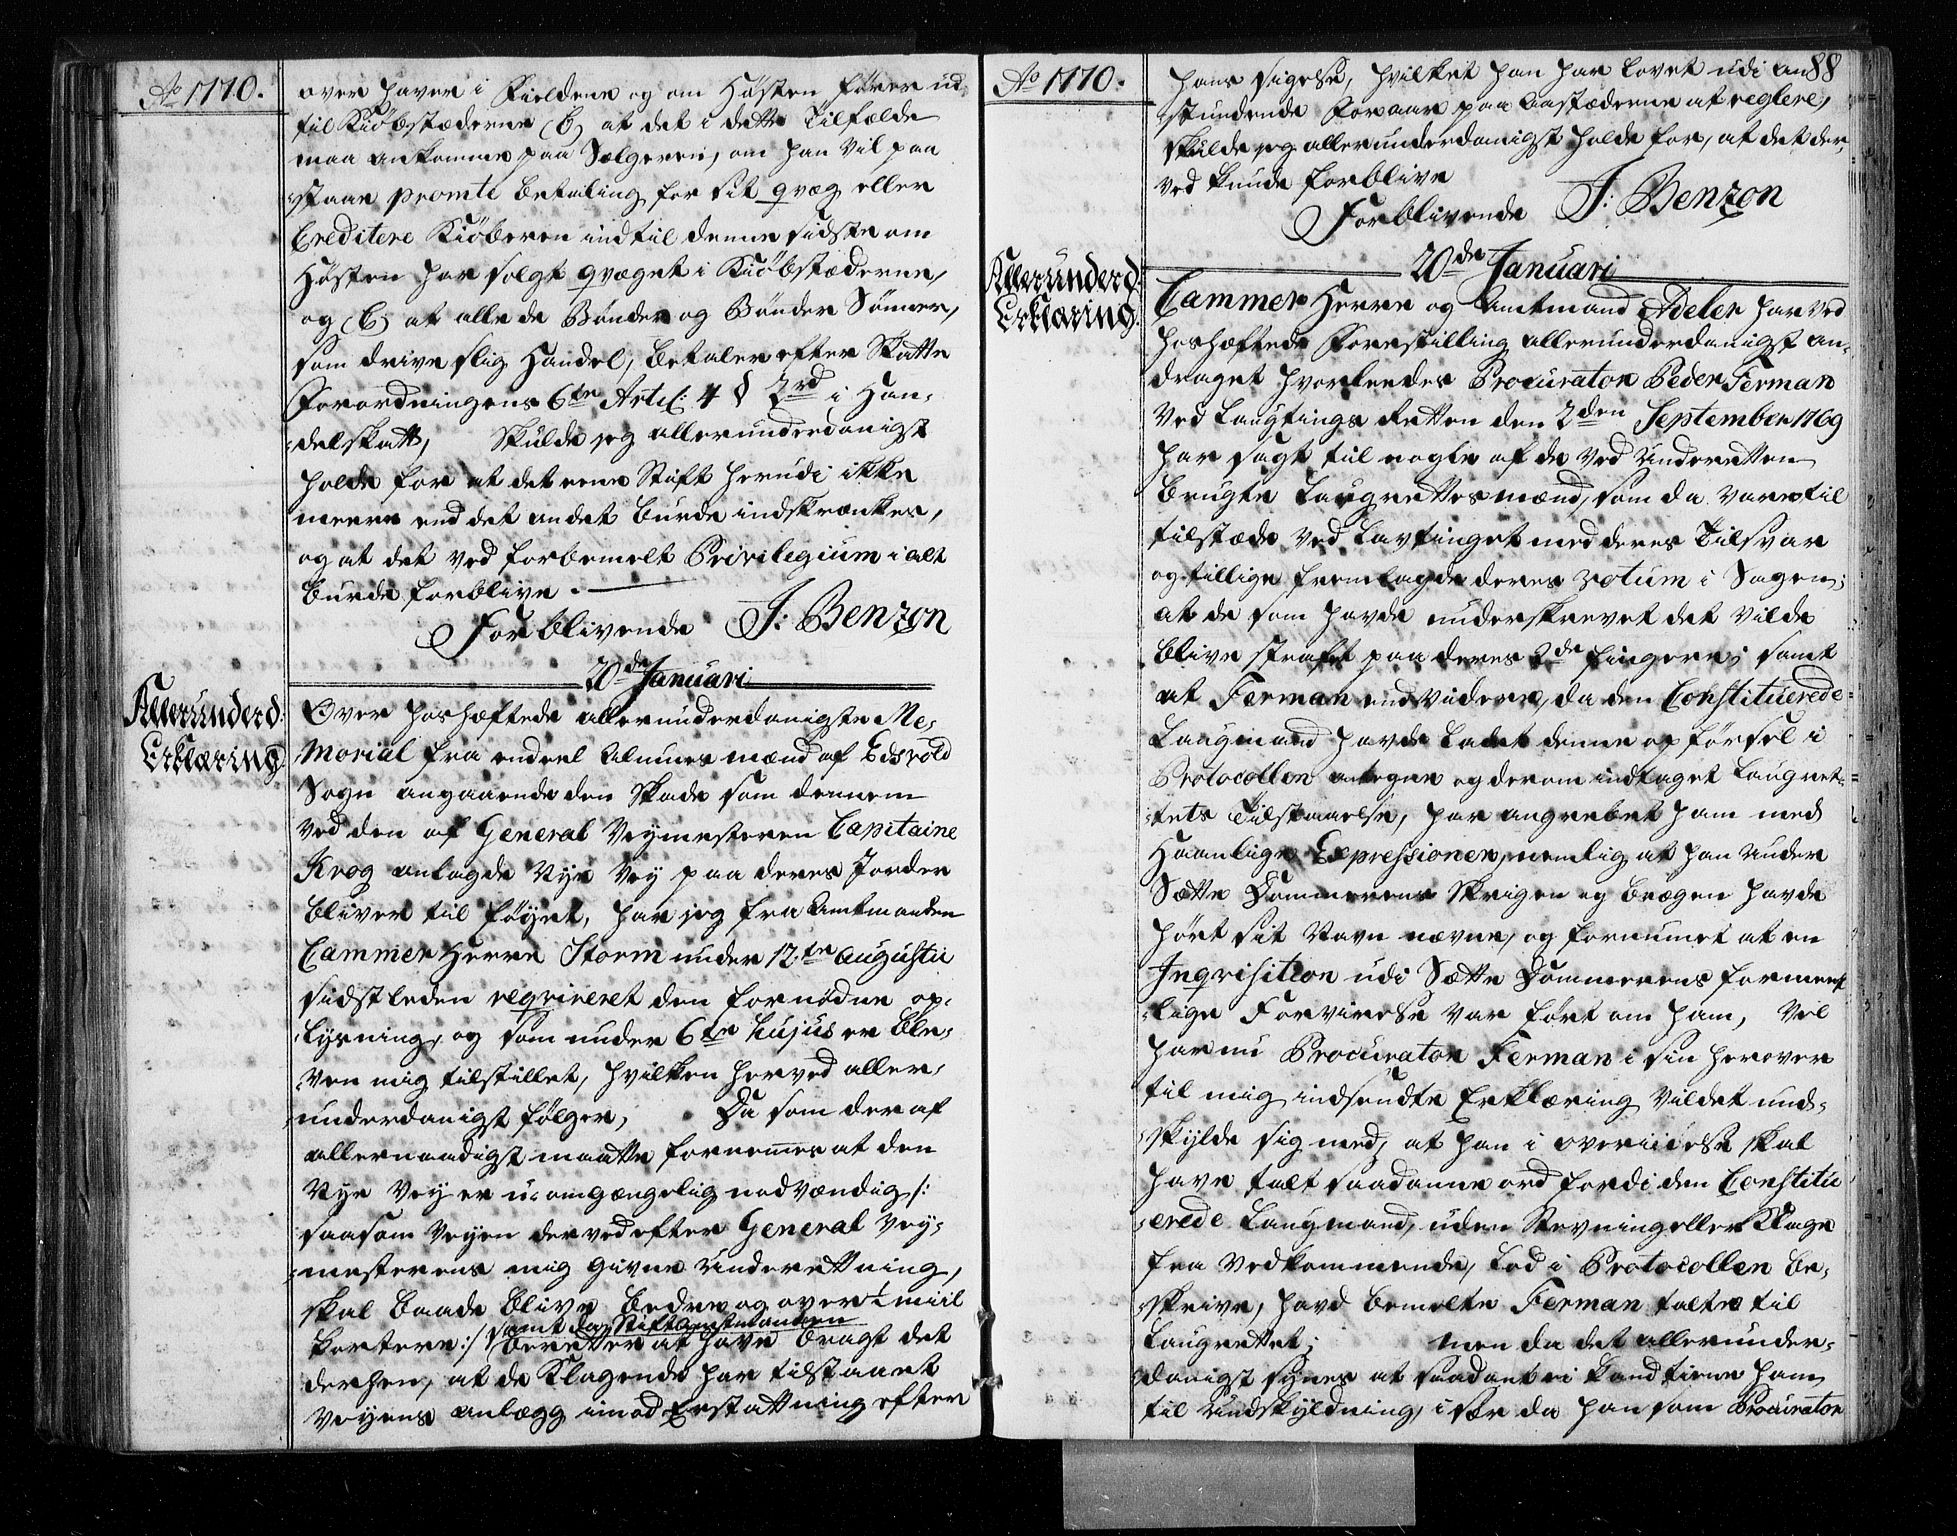 Ao 1770.
over haver i Fieldene og om Høsten fører ud
til Kiøbstæderne (b) at det i dette Tilfælde
maa ankomme paa Sælgeren, om han vil paa
staae promte betaling for sit qvæg eller
Creditere Kiøberen indtil denne sidste om
Høsten har solgt qvæget i Kiøbstæderne,
og (c) at alle de Bønder og Bønder Sønner,
som drive slig Handel, betaler efter Skatte
Forordningens 6te Artic: 4 § 2rd i Han-
delskatt, Skulde jeg allerunderdanigst
holde for at det eene Stift herudi ikke
meere end det andet burde indskrænkes,
og at det ved forbemelt Privilegium i alt
burde forblive.
Forblivende J: Benzon
20de Januari
Allerunderd:
Erklæring
Over hoshæftede allerunderdanigste Me-
morial fra endeel Almues mænd af Edsvold
Sogn angaaende den Skade som dennem
ved den af General Veymesteren Capitaine
Krog anlagde Nye Vey paa deres Jorder
bliver til føyet, har jeg fra Amtmanden
Cammer Herre Storm under 12te Augustii
sidstleden reqvireret den fornødne op-
lysning, og som under 6te hujus er ble-
ven mig tilstillet, hvilken herved aller-
underdanigst følger, Da som deraf
allernaadigst maatte fornemmes at den
Nye Vey er u-omgængelig nødvændig /:
saasom Veyen derved efter General Vey-
mesterens mig givne Underrettning,
skal baade blive bedre og over ¼ miil
samt da Stiftamtmanden
kortere:/ beretter at have bragt det
derhen, at de Klagende har tilstaaet
Veyens anlægg imod Erstattning efter
Ao 1770.
88
hans sigelse, hvilket han har lovet udi an-
stundende Foraar paa Aastæderne at reglere,
skulde jeg allerunderdanigst holde for, at det der
ved kunde forblive
Forblivende J: Benzon
20de Januari
Allerunderd:
Erklaring.
Cammer Herre og Amtmand Adeler har ved
hoshæftede Forestilling allerunderdanigst an-
draget hvorledes Procurator Peder Ferman
ved Laugtings Retten den 2den September 1769
har sagt til nogle af de ved Underretten
brugte Laugrettesmænd, som da vare til
tilstæde ved Lavtinget med deres Tilsvar
og tillige fremlagde deres votum i Sagen;
at de som havde underskrevet det vilde
blive straft paa deres 2de fingere; samt
at Ferman end videre, da den Constituerede
Laugmand havde ladet denne opførsel i
Protocollen antegne og derom indtaget Laugret-
tets Tilstaaelse, har angrebet ham med
Haanlige Expressioner, nemlig at han under
Sætte Dommerens Skrigen og brægen havde
hørt sit Navn nævne, og fornumet at en
Inqvisition udi Sætte Dommerens formeent-
lige Forvirelse var ført om ham, Vel
har nu Procurator Ferman i sin herover
til mig indsendte Erklæring vildet und-
skylde sig med, at han i overiilelse skal
have talt saadanne ord fordi den Constitu
erede Laugmand, uden Stevning eller Klage
fra vedkommende, lod i Protocollen be-
skrive, hvad bemelte Ferman talte til
Laugrettet; men da det allerunder-
danigst synes at saadant ei kand tiene ham
til undskyldning, især da han som Procurator